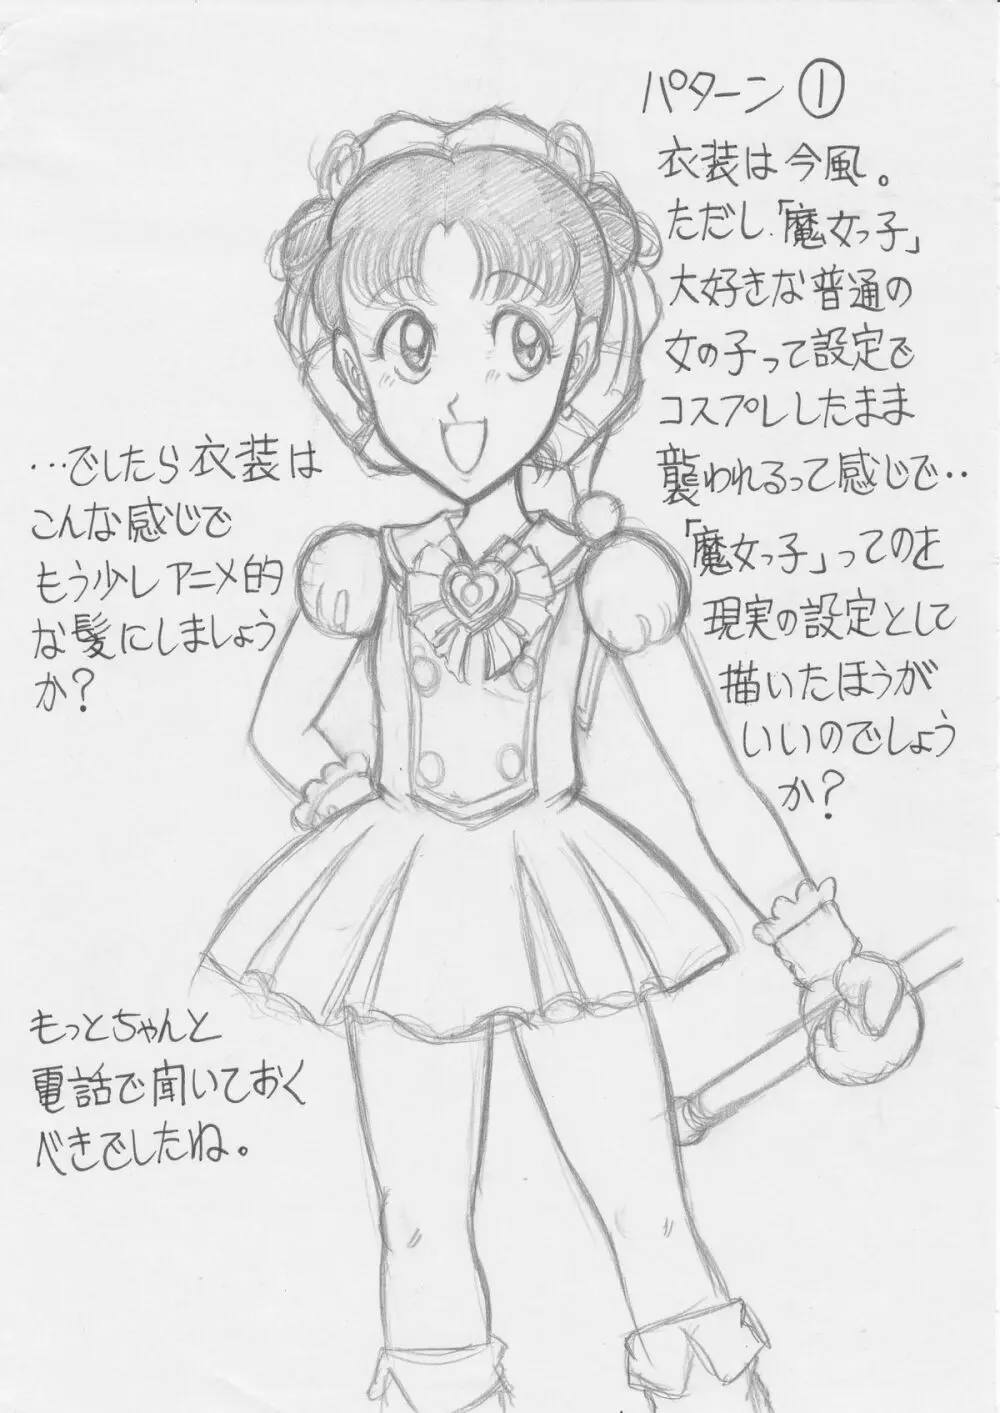 パターン①
衣装は今風。
ただし、「魔女っ子」
大好きな普通の
女の子って設定で
コスプレしたまま
襲われるって感じで‥
「魔女っ子」ってのを
現実の設定として
描いたほうが
いいのでしょう
か?
…でしたら衣装は
こんな感じで
もう少しアニメ的
な髪にしましょう
か?
もっとちゃんと
電話で聞いておく
べきでしたね。